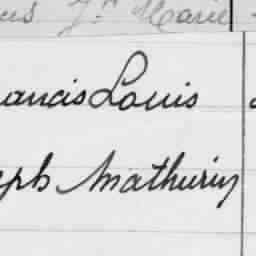 us Jn Marie
rancis Louis
eph Mathurin